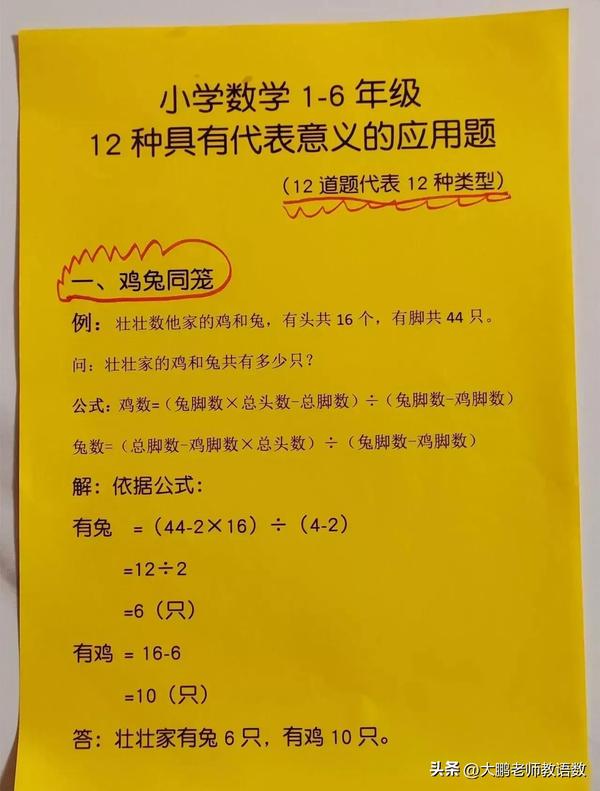 小学数学 1-6 年级
12 种具有代表意义的应用题
（12 道题代表 12 种类型）
一、鸡兔同笼
例：壮壮数他家的鸡和兔，有头共 16 个，有脚共 44 只。
问：壮壮家的鸡和兔共有多少只？
公式：鸡数=（兔脚数×总头数-总脚数）÷（兔脚数-鸡脚数）
兔数=（总脚数-鸡脚数×总头数）÷（兔脚数-鸡脚数）
解：依据公式：
有兔 =（44-2×16）÷（4-2）
=12÷2
=6（只）
有鸡 = 16-6
=10（只）
答：壮壮家有兔 6 只，有鸡 10 只。
头条 @大鹏老师教语数